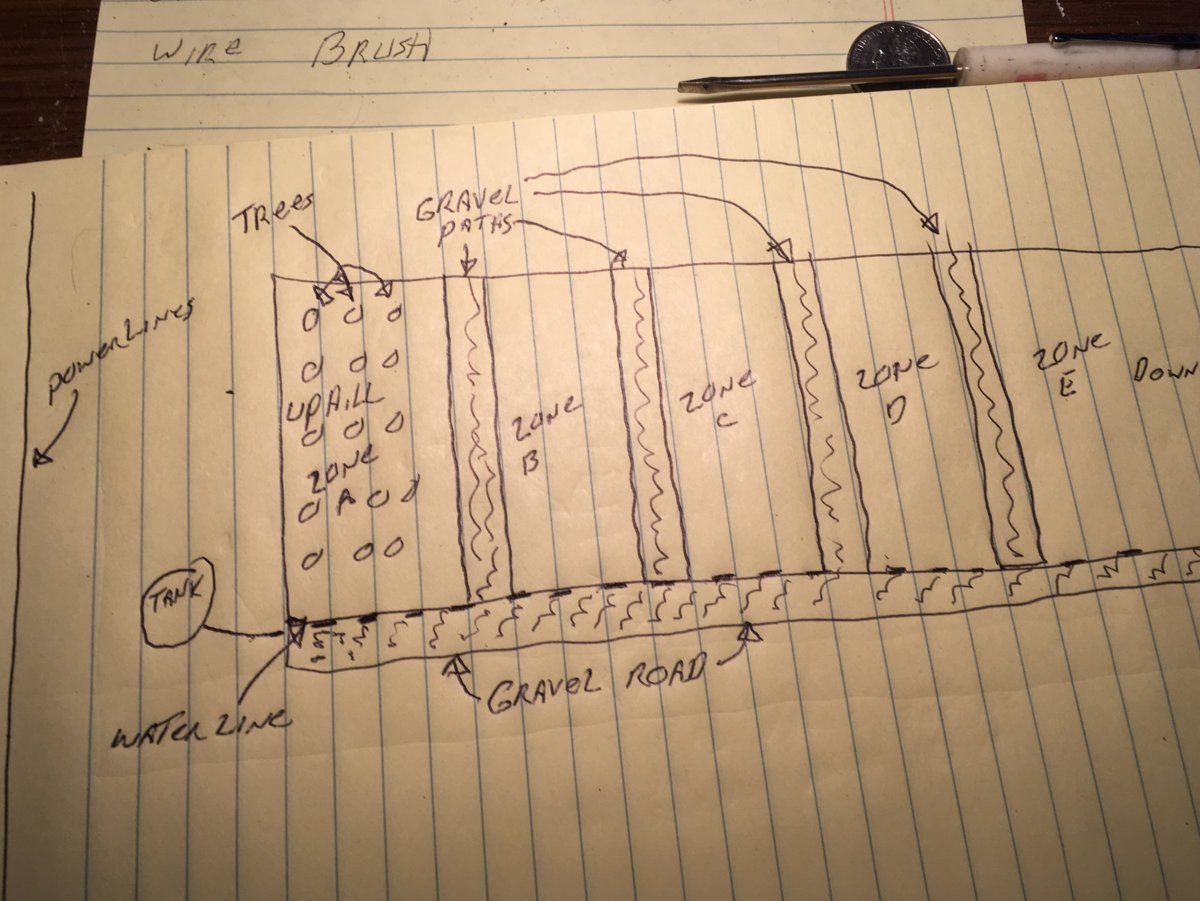 WIRE BRUSH
TREES
GRAVEL
PATHS
POWERLINES
UPHILL
ZONE
A
ZONE
B
ZONE
C
ZONE
D
ZONE
E
DOWN
TANK
WATER LINE
GRAVEL ROAD